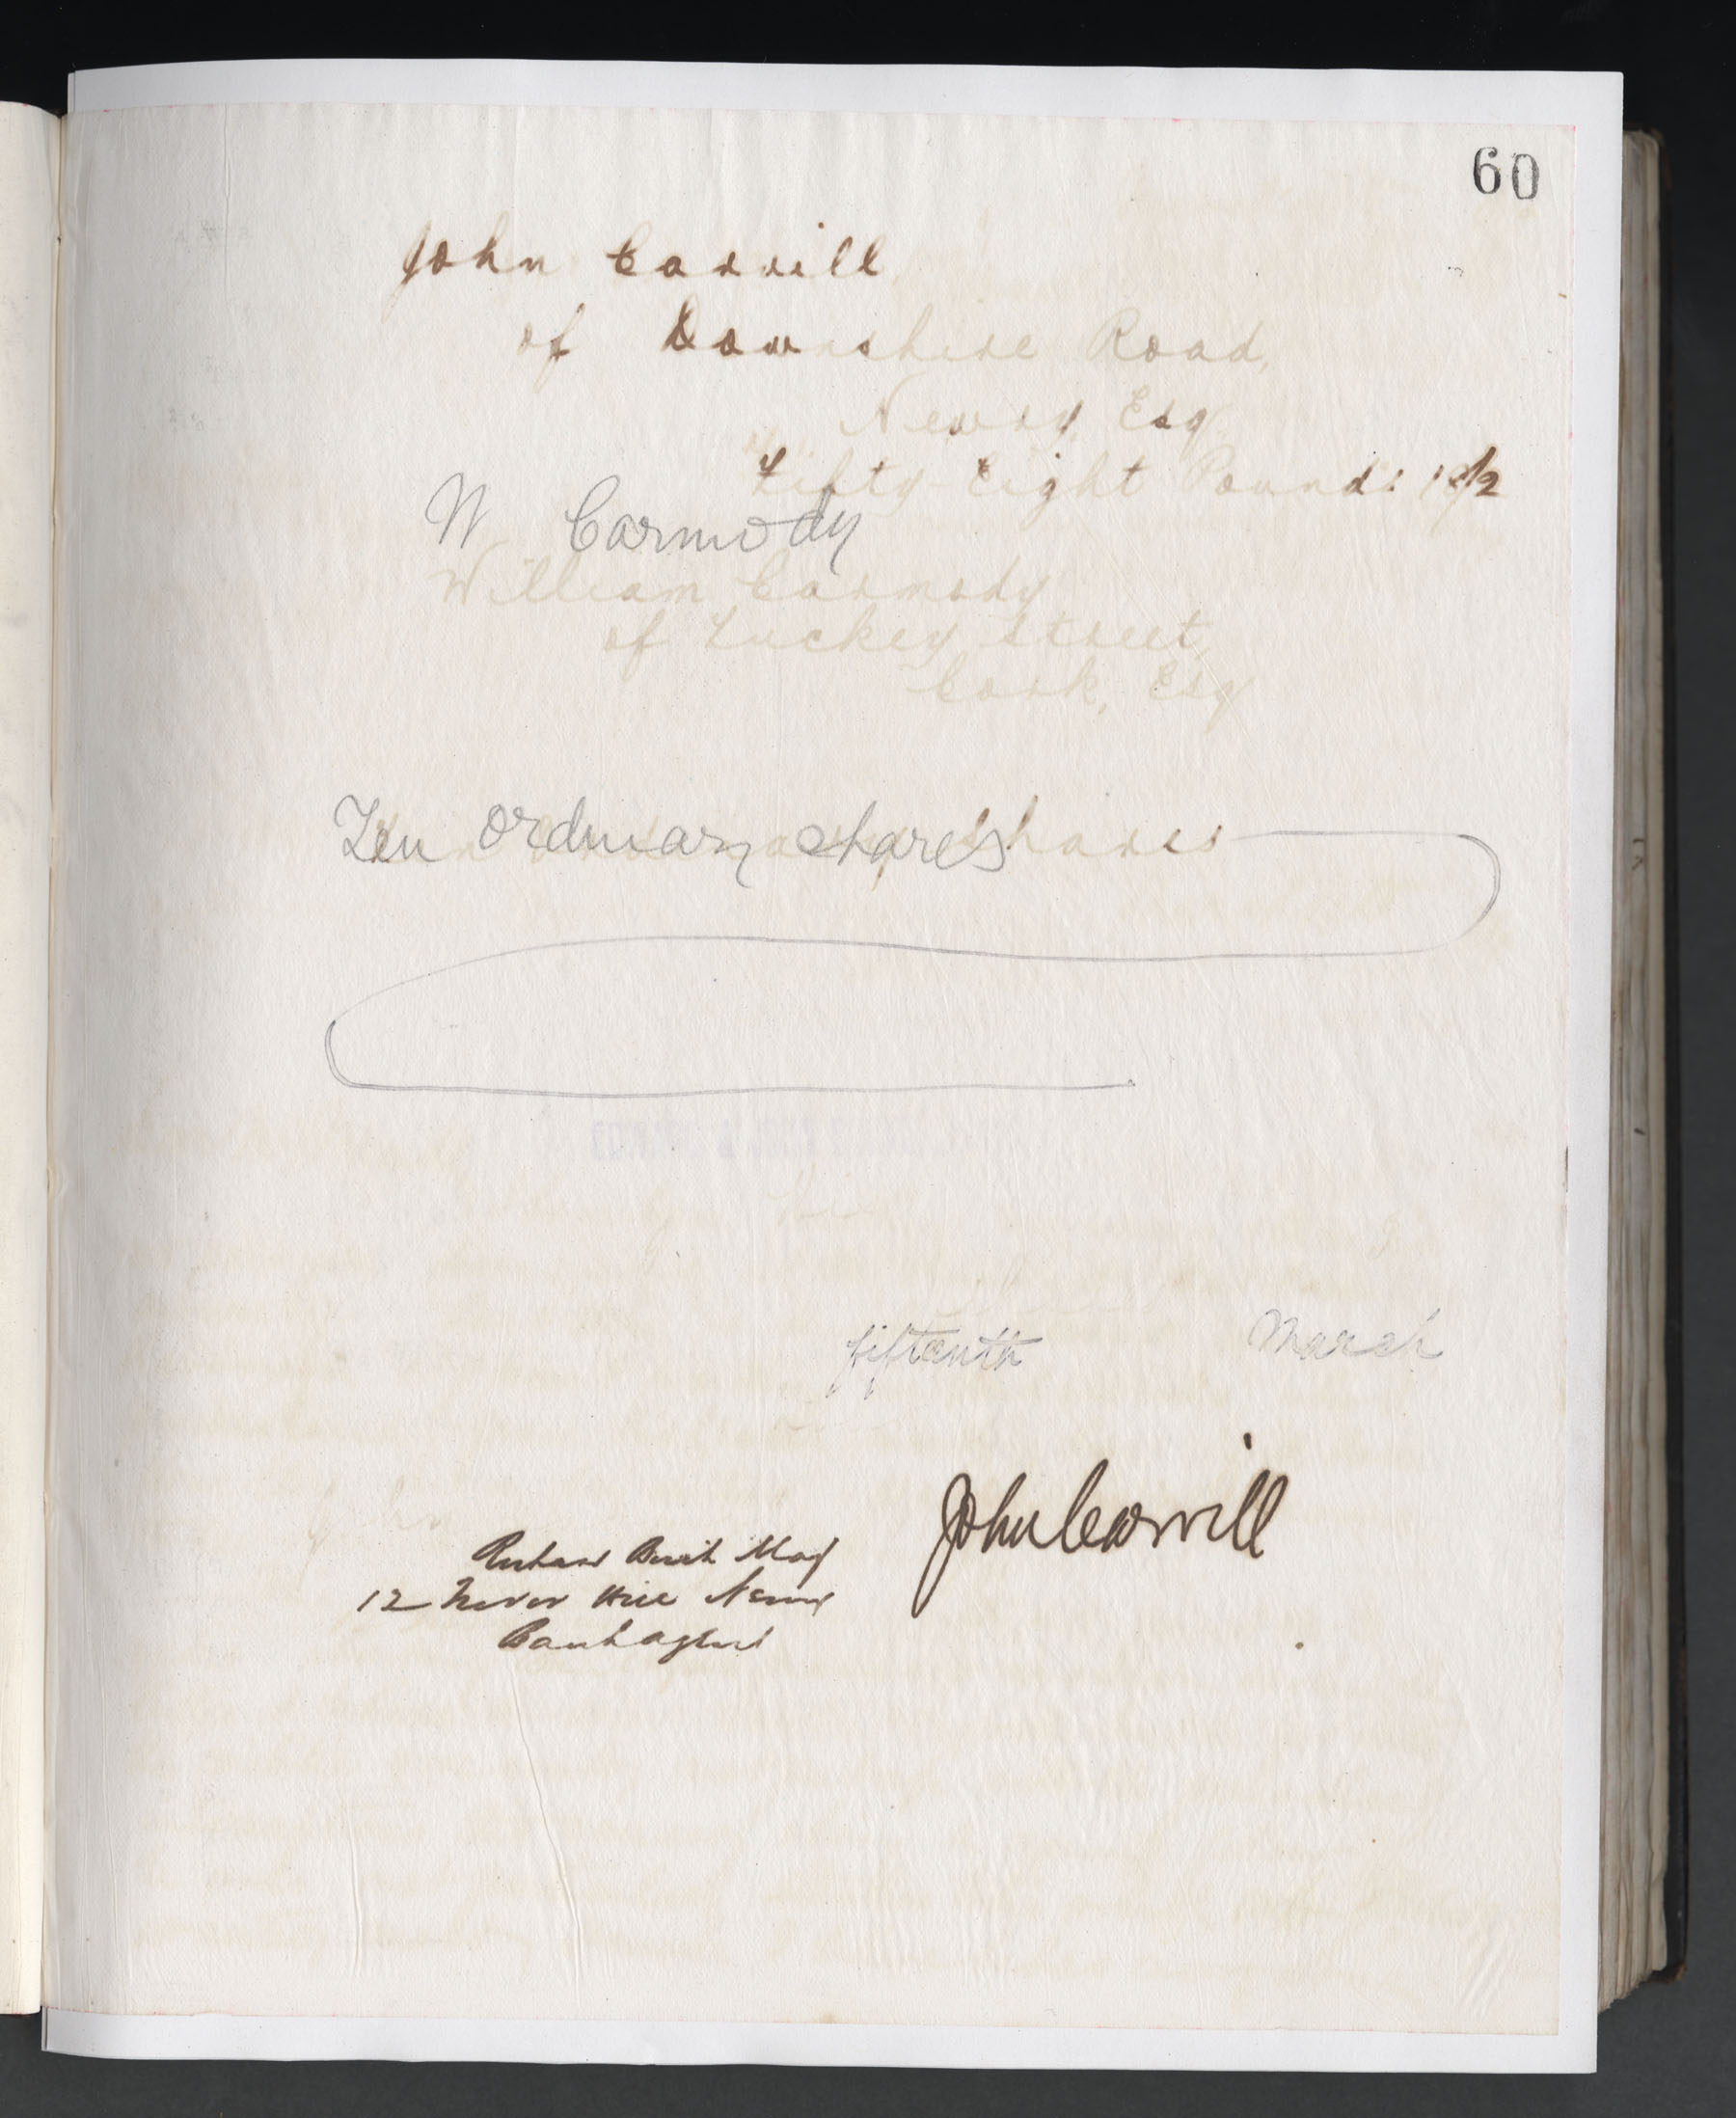 60
John Carvill
of Downshire Road,
Newry Esq
Fifty Eight Pounds
W Carmody
William Carmody
of Tuckey Street,
Cork, Esq
Ten ordinary shares Shares
fifteenth March
John Carvill
12 Trevor Hill Newry
Bank Agent